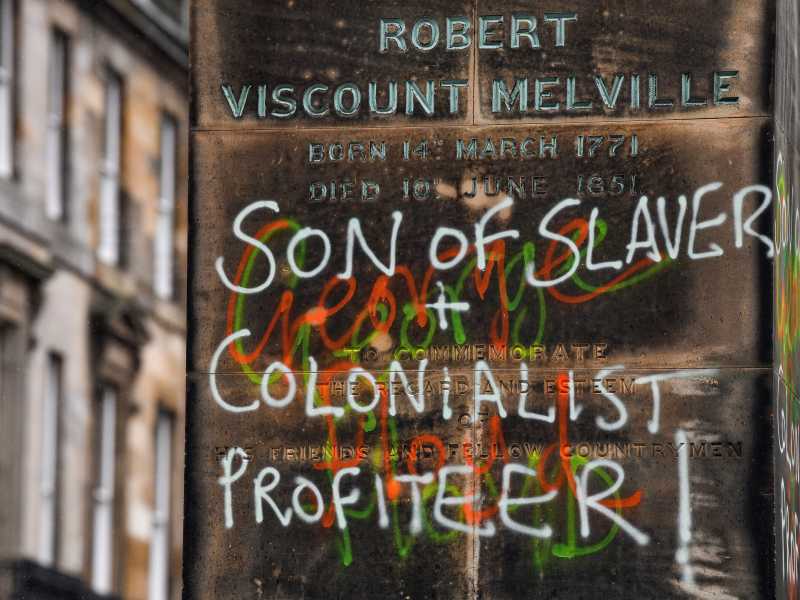 ROBERT
VISCOUNT MELVILLE
BORN 14TH MARCH 1771.
DIED 10TH JUNE 1851.
SON OF SLAVER
George
+
TO COMMEMORATE
COLONIALIST
THE REGARD AND ESTEEM
OF
Floyd
HIS FRIENDS AND FELLOW COUNTRYMEN
PROFITEER!